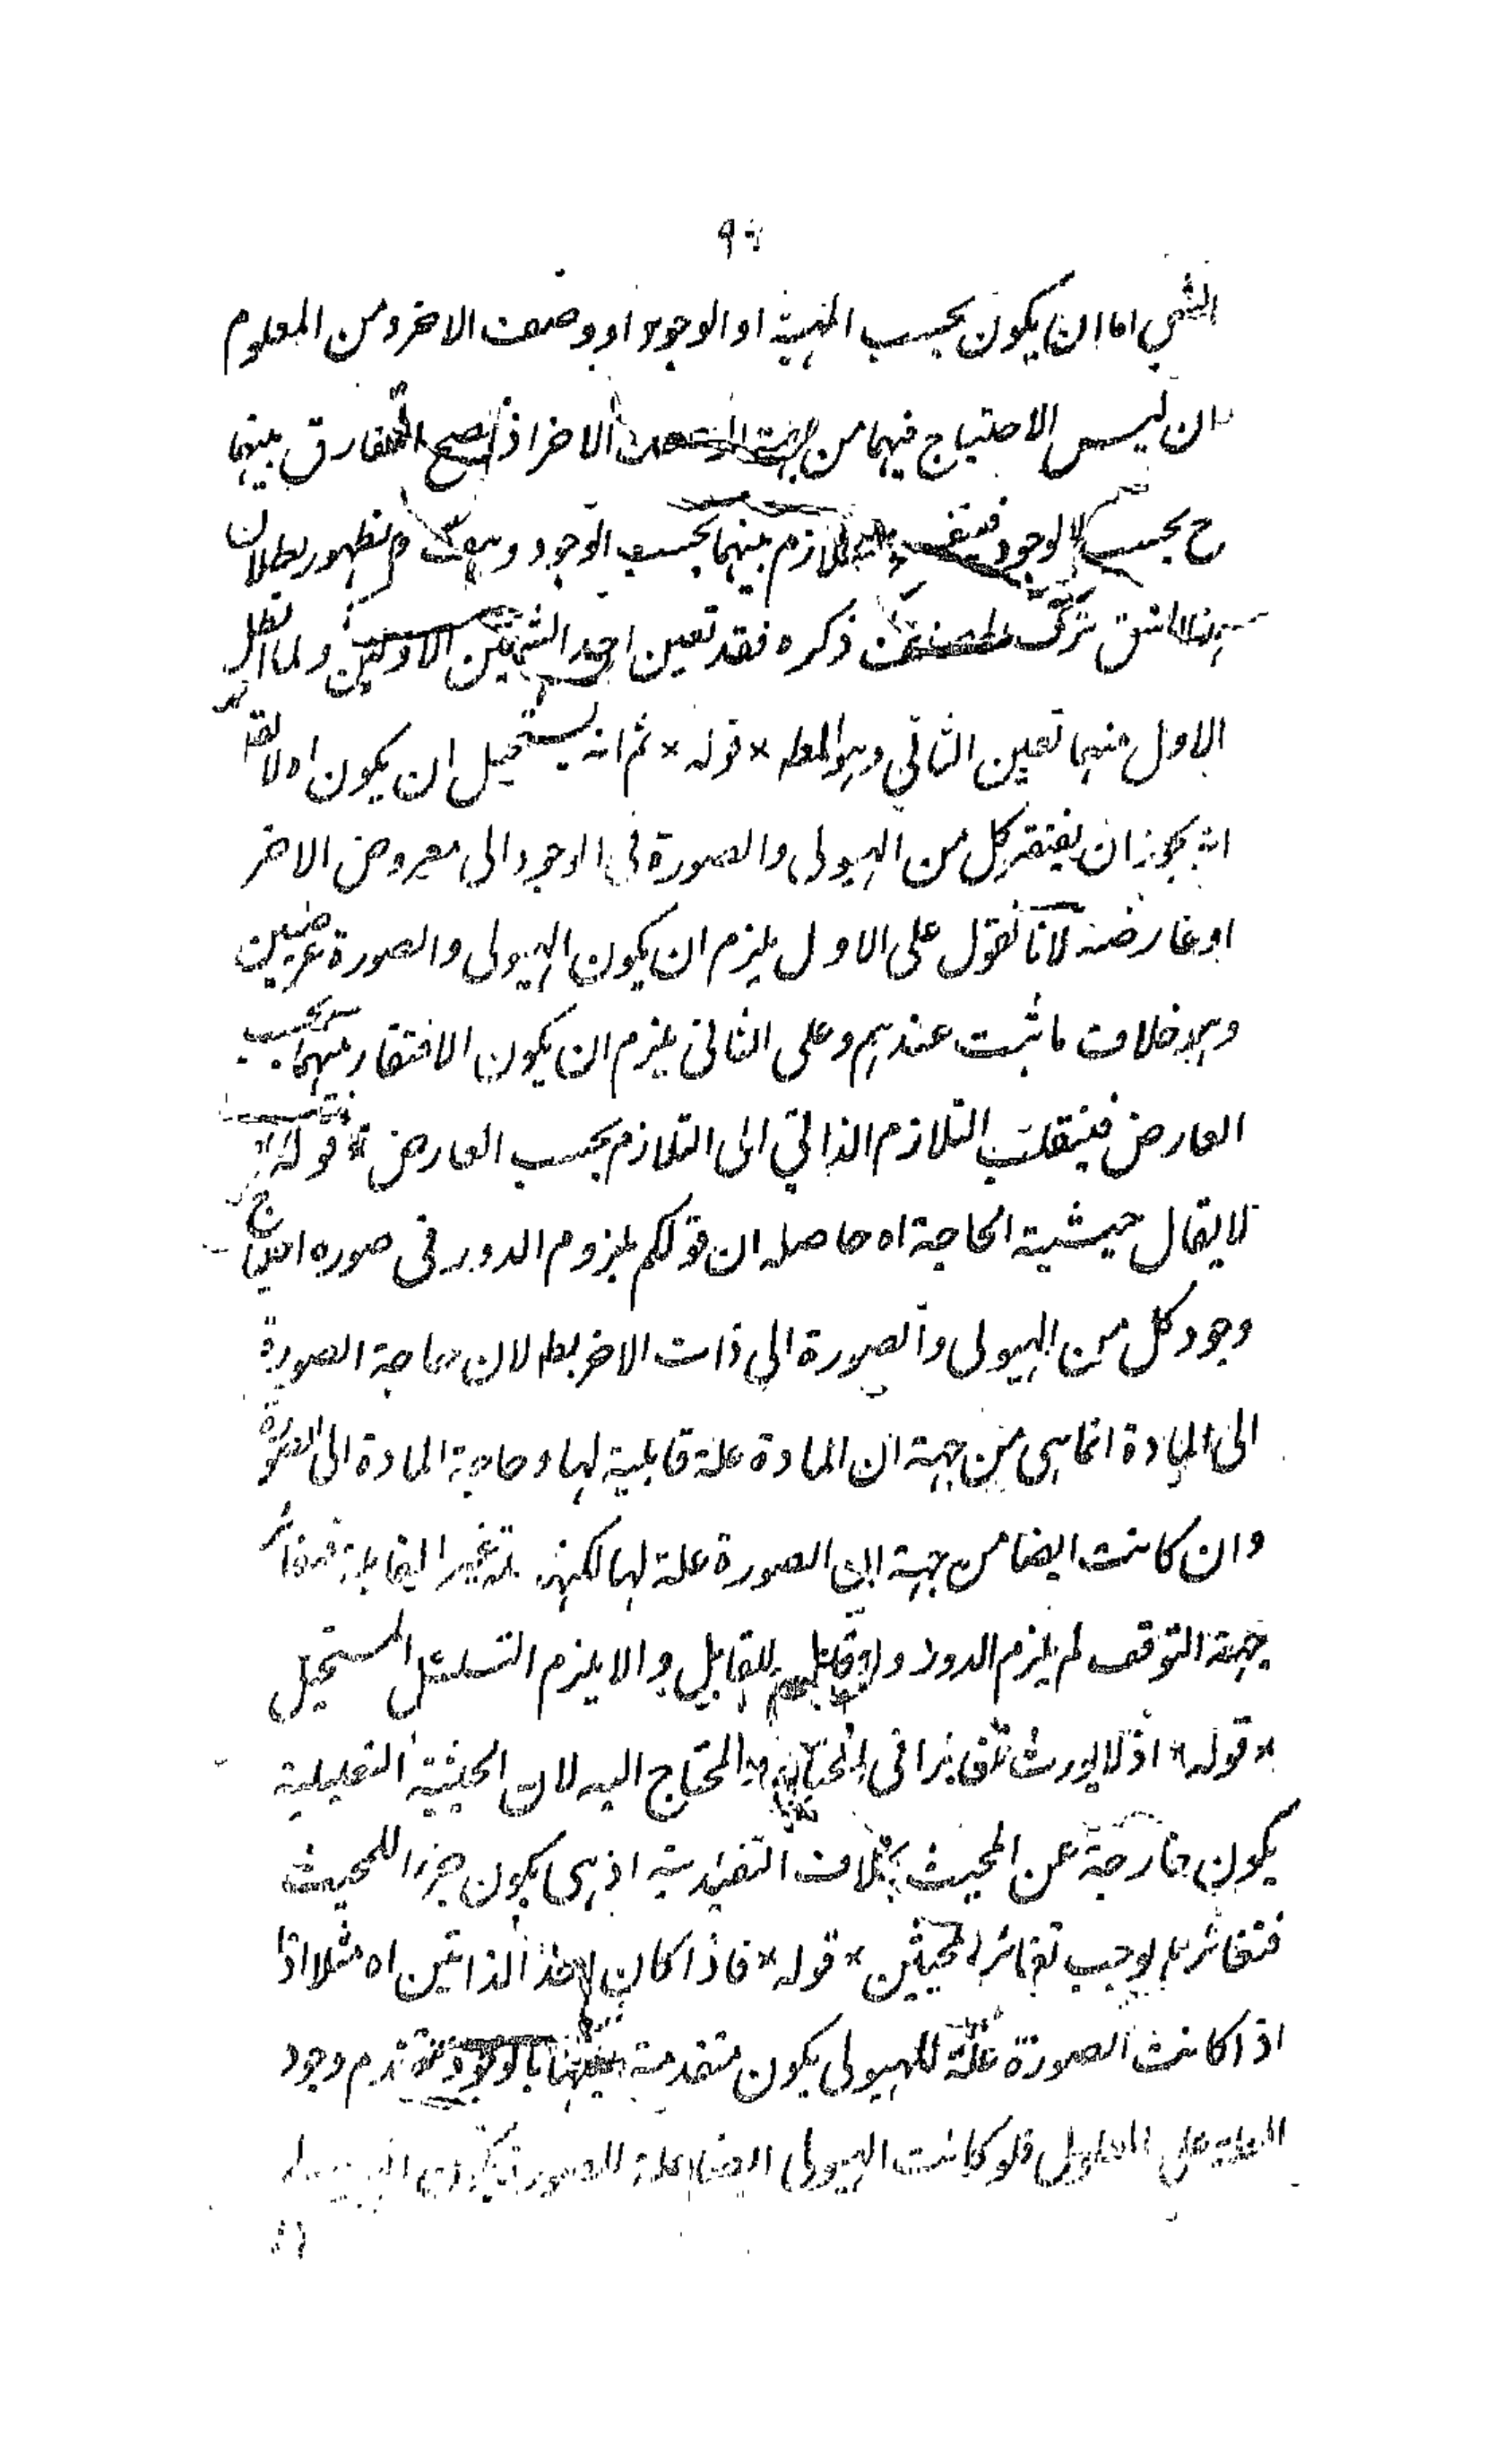 الشي اما ان يكون بحسب المهية او الوجود او وصف الاخر ومن المعلوم
ان ليس الاحتياج فيهما من جهة الاخر اذ يصح التفارق بينهما
ح بحسب الوجود التلازم بينهما بحسب الوجود وهف م لظهور بطلان
هذا الشق ترك المصنف ذكره فقد تعين احد الشقين الاولين ولما بطل
الاول منهما تعين الثاني وهو المط * قوله * ثم انه يستحيل ان يكون اه لا يقال
انه يجوز ان يفتقر كل من الهيولى والصورة في الوجود الى معروض الاخر
او عارضه لانا نقول على الاول يلزم ان يكون الهيولى والصورة عرضين
وهو خلاف ما ثبت عندهم وعلى الثاني يلزم ان يكون الافتقار منهما بحسب
العارض فينقلب التلازم الذاتي الى التلازم بحسب العارض * قوله *
لا يقال حيثية الحاجة اه حاصله ان قولكم بلزوم الدور في صورة احتياج
وجود كل من الهيولى والصورة الى ذات الاخر بط لان حاجة الصورة
الى المادة انما هى من جهة ان المادة علة قابلية لها وحاجة المادة الى الصورة
وان كانت ايضا من جهة ان الصورة علة لها لكنها
جهة التوقف لم يلزم الدور ولا للقابل والا يلزم التسلسل المستحيل
* قوله * اذ لا يورث تغايرا في المحتاج والمحتاج اليه لان الحيثية التعليلية
يكون خارجة عن المحيث بخلاف التقييدية اذ هى يكون جزءا للمحيث
فتغايرهم يوجب تغاير المحيثين * قوله * فاذا كان لاحد الذاتين اه مثلا اذا
اذا كانت الصورة علة للهيولى يكون متقدمة عليها بالوجود تقدم وجود
العلة على المعلول فلو كانت الهيولى ايضا علة للصورة